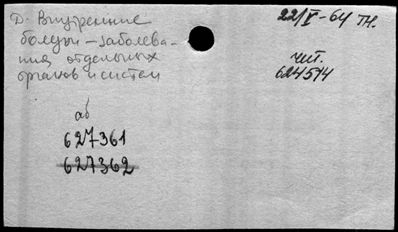 Д. Внутренние
22/V-64 тн.
болезни — заболева-
ния отдельных
органов и систем
чит.
624514
аб
627361
627362